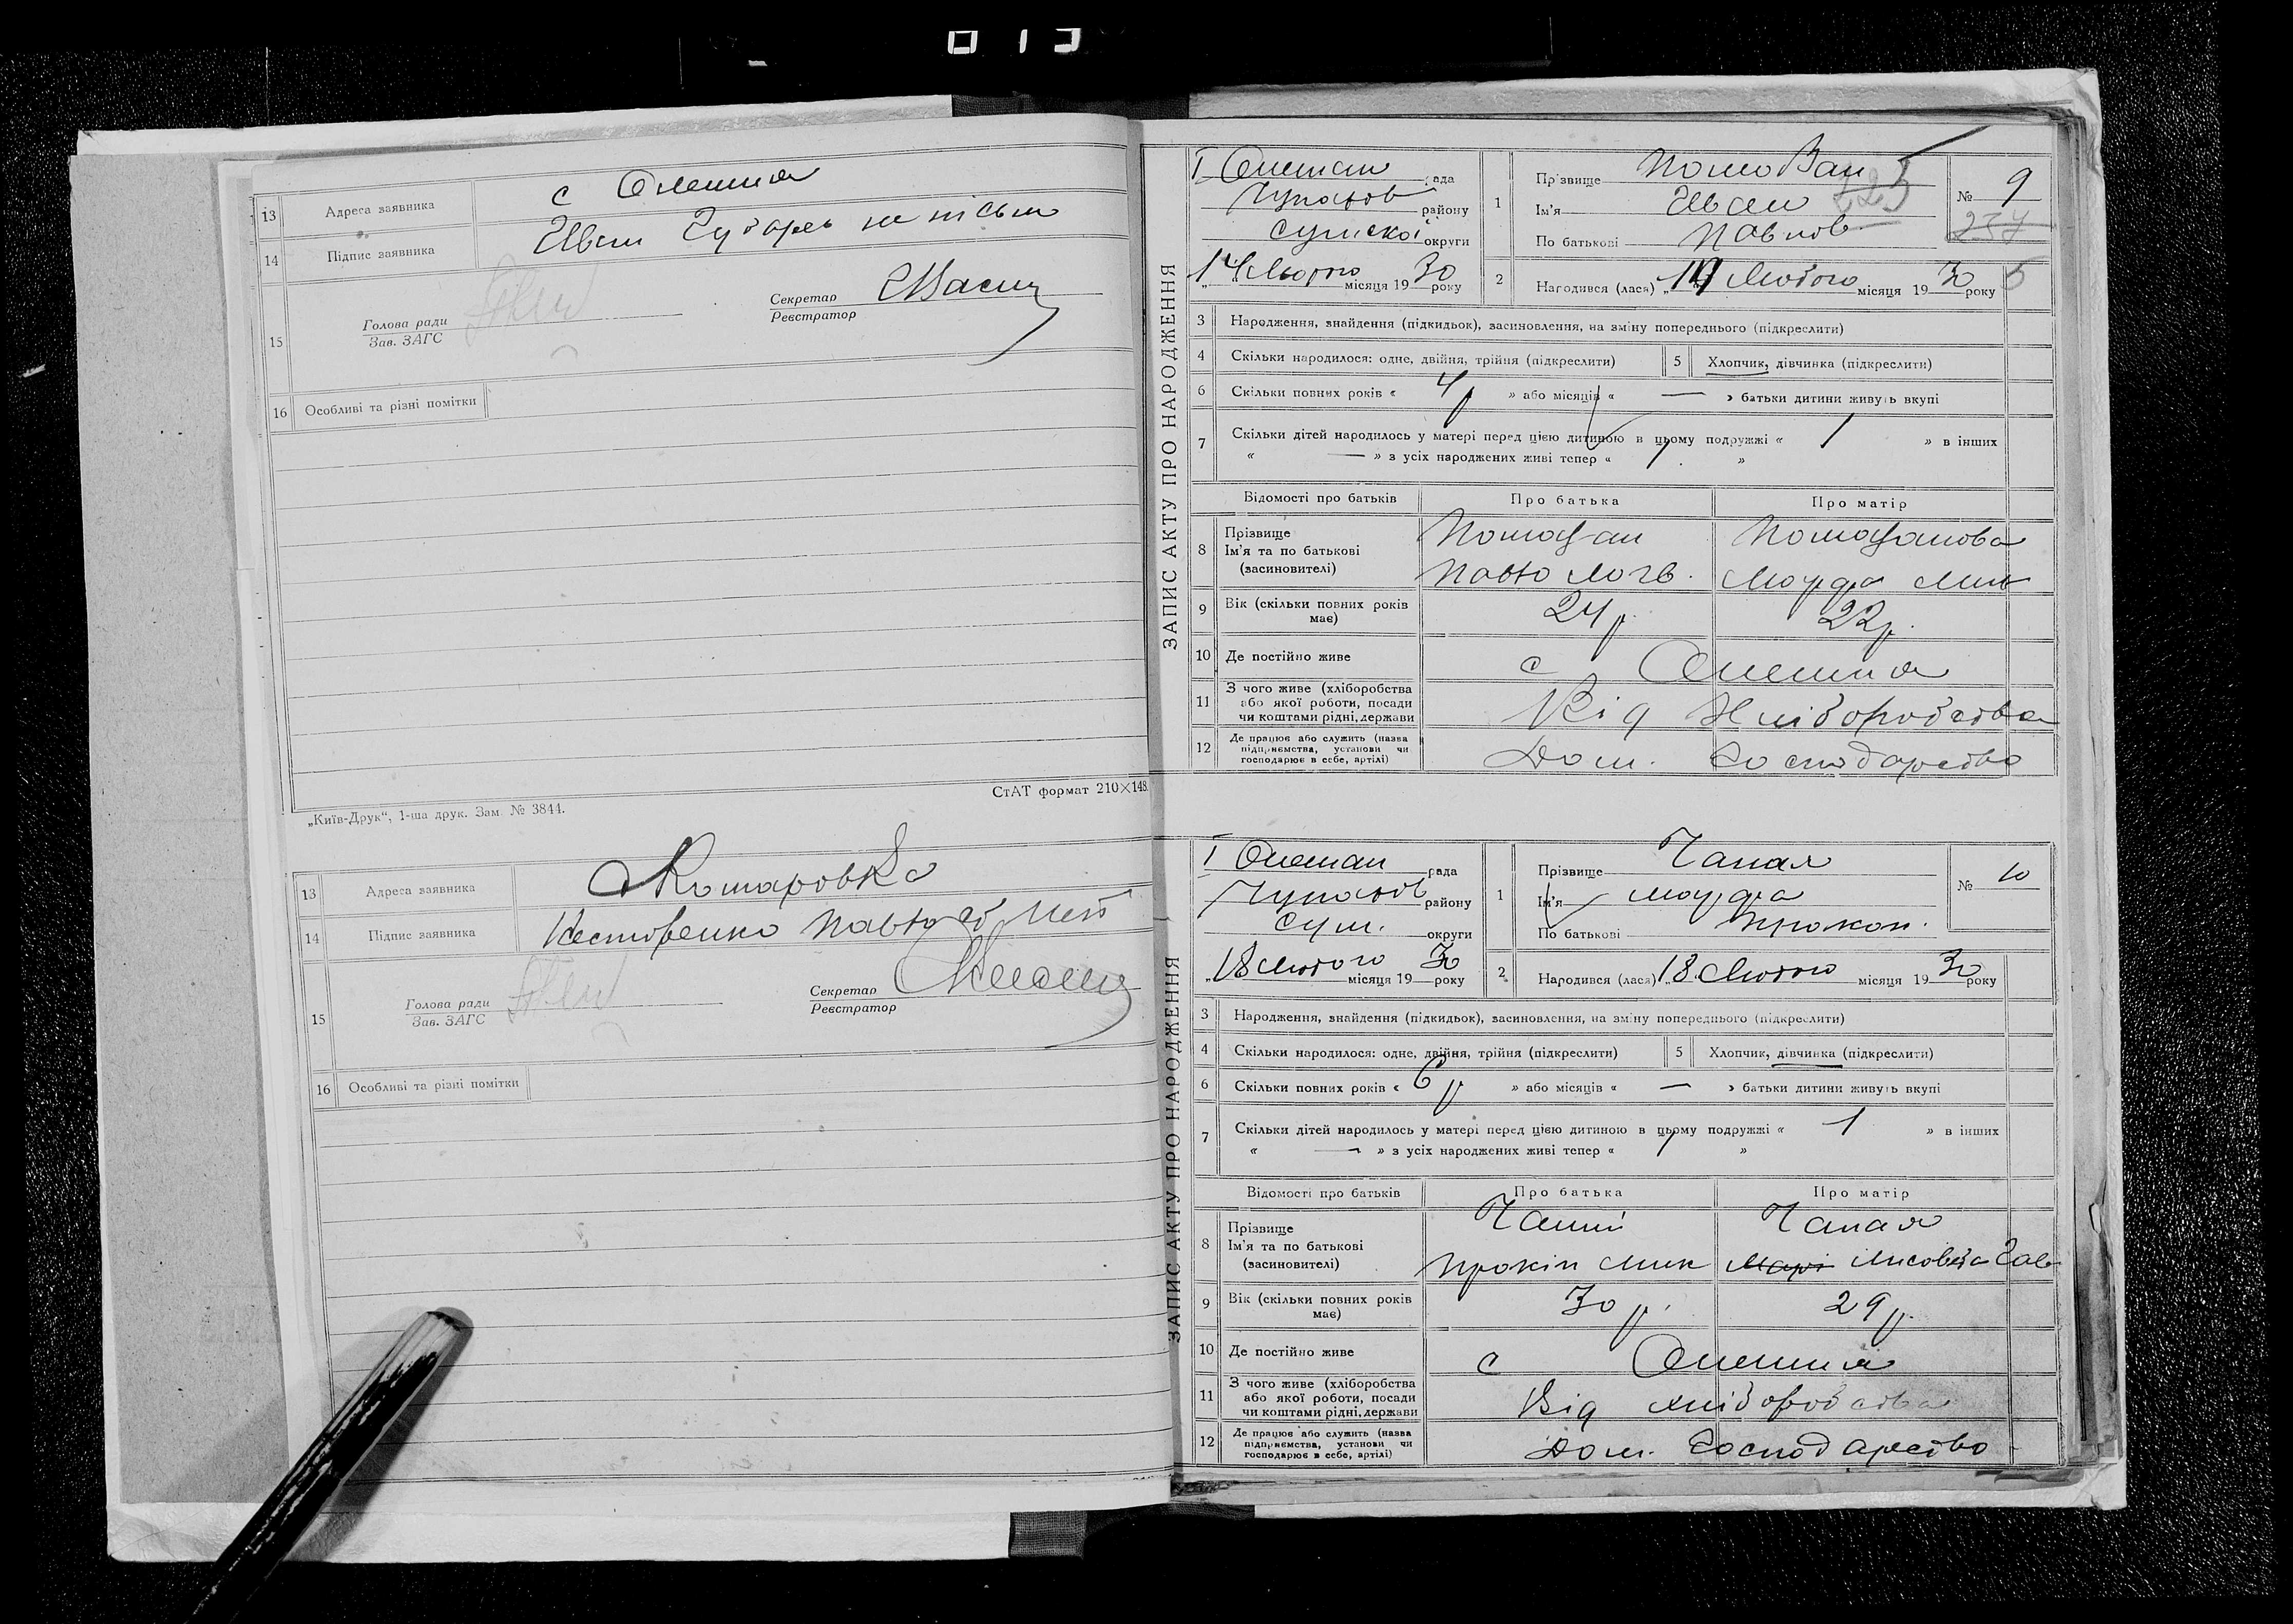 013
13 Адреса заявника с Олешня
14 Підпис заявника Іван Губарь не письм
15 Голова ради
Зав. ЗАГС
Секретар
Реєстратор
16 Особливі та різні помітки
СтАТ формат 210×148.
„Київ-Друк“, 1-ша друк. Зам. № 3844.
13 Адреса заявника Комаровка
14 Підпис заявника Нестеренко Павло
15 Голова ради
Зав. ЗАГС
Секретар
Реєстратор
16 Особливі та різні помітки
ЗАПИС АКТУ ПРО НАРОДЖЕННЯ
І Олешан рада
Чупахов району
Сумської округи
„14 Лютого місяця 1930 року
1 Прізвище
Ім'я Іван
По батькові Павлов
225
№ 9
237
2 Народився (лася) „14 Лютого місяця 1930 року
5
3 Народження, знайдення (підкидьок), засиновлення, на зміну попереднього (підкреслити)
4 Скільки народилося: одне, двійня, трійня (підкреслити)
5 Хлопчик, дівчинка (підкреслити)
6 Скільки повних років « 4 р » або місяців « — » батьки дитини живуть вкупі
7 Скільки дітей народилось у матері перед цією дитиною в цьому подружжі « 1 » в інших
« — » з усіх народжених живі тепер « 1 »
Відомості про батьків Про батька Про матір
8 Прізвище
Ім'я та по батькові
(засиновителі)
Павло Логв.
Мотря Мик
9 Вік (скільки повних років має) 24 р. 22 р.
10 Де постійно живе с Олешня
11 З чого живе (хліборобства або якої роботи, посади чи коштами рідні, держави Від Хліборобства
12 Де працює або служить (назва підприємства, установи чи господарює в себе, артілі) Дом. Господарство
ЗАПИС АКТУ ПРО НАРОДЖЕННЯ
І Олешан рада
Чупахов району
Сум. округи
„18 Лютого місяця 1930 року
1 Прізвище Чапая
Ім'я Мотря
По батькові Прокоп.
№ 10
2 Народився (лася) „18 Лютого місяця 1930 року
3 Народження, знайдення (підкидьок), засиновлення, на зміну попереднього (підкреслити)
4 Скільки народилося: одне, двійня, трійня (підкреслити)
5 Хлопчик, дівчинка (підкреслити)
6 Скільки повних років « 6 р » або місяців « — » батьки дитини живуть вкупі
7 Скільки дітей народилось у матері перед цією дитиною в цьому подружжі « 1 » в інших
« — » з усіх народжених живі тепер « 1 »
Відомості про батьків Про батька Про матір
8 Прізвище
Ім'я та по батькові
(засиновителі)
Чапий Чапая
Прокіп Мик Марі Лисовета Гав
9 Вік (скільки повних років має) 30 р. 29 р.
10 Де постійно живе с Олешня
11 З чого живе (хліборобства або якої роботи, посади чи коштами рідні, держави Від хліборобства
12 Де працює або служить (назва підприємства, установи чи господарює в себе, артілі) Дом. Господарство